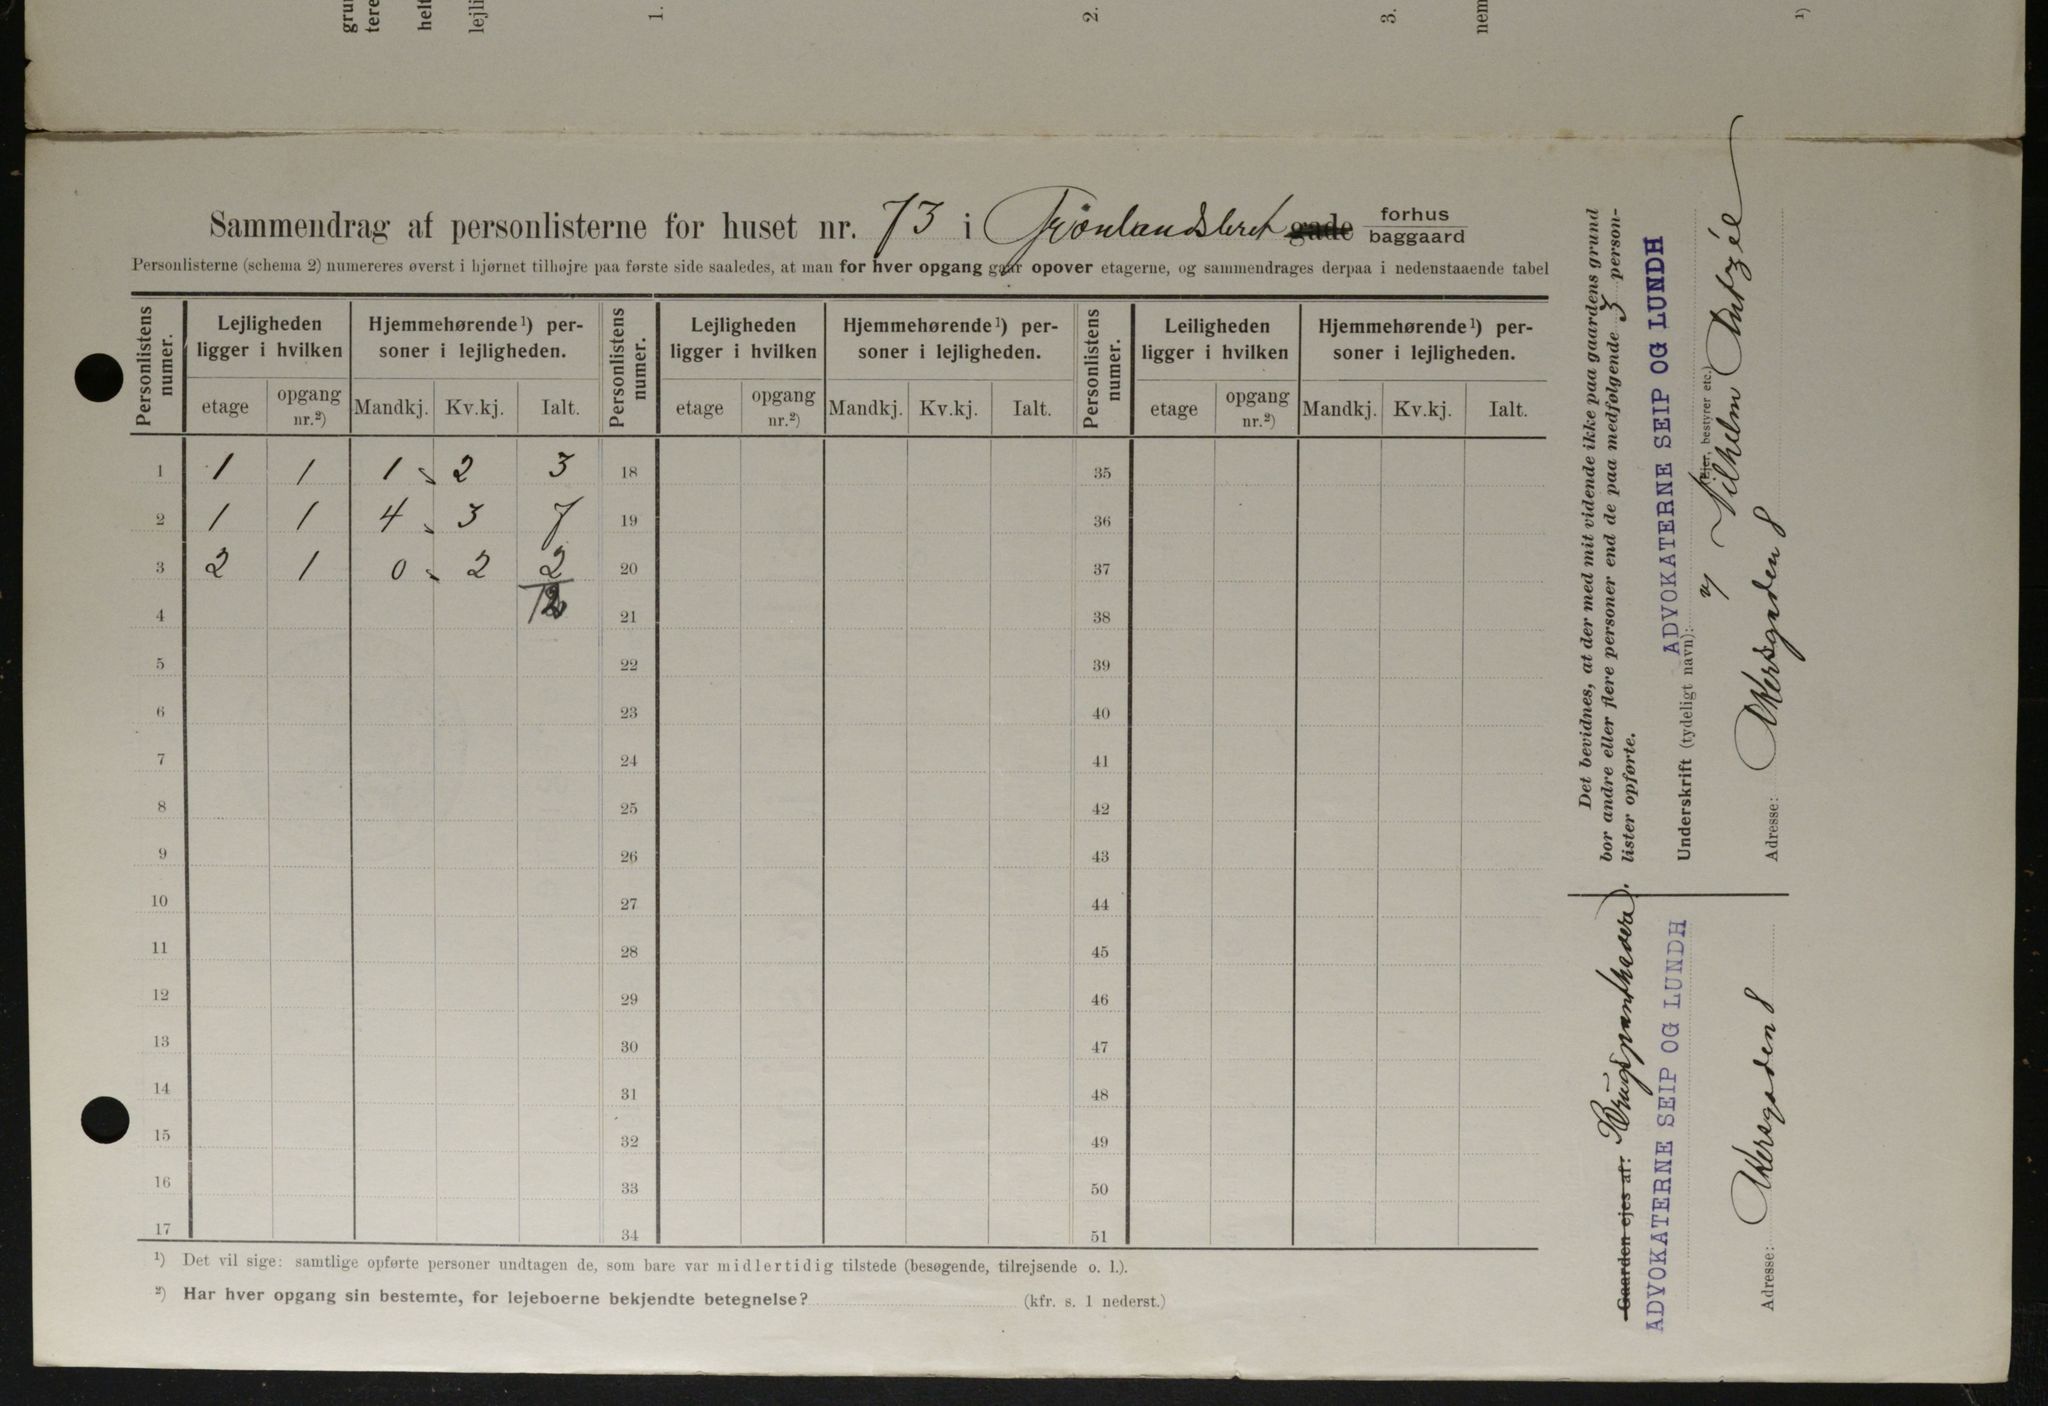 gru
tere
helt
lejli
1.
2.
3.
nem
1)
Sammendrag af personlisterne for huset nr. 73 i Grönlandsleret gade forhus baggaard
Personlisterne (schema 2) numereres øverst i hjørnet tilhøjre paa første side saaledes, at man for hver opgang gaar opover etagerne, og sammendrages derpaa i nedenstaaende tabel
Personlistens numer. Lejligheden ligger i hvilken Hjemmehørende¹) personer i lejligheden. Personlistens numer. Lejligheden ligger i hvilken Hjemmehørende¹) personer i lejligheden. Personlistens numer. Leiligheden ligger i hvilken Hjemmehørende¹) personer i lejligheden.
etage opgang nr.²) Mandkj. Kv.kj. Ialt. etage opgang nr.²) Mandkj. Kv.kj. Ialt. etage opgang nr.²) Mandkj. Kv.kj. Ialt.
1 1 1 1 2 3 18 35
2 1 1 4 3 7 19 36
3 2 1 0 2 2 20 37
4 12 21 38
5 22 39
6 23 40
7 24 41
8 25 42
9 26 43
10 27 44
11 28 45
12 29 46
13 30 47
14 31 48
15 32 49
16 33 50
17 34 51
¹) Det vil sige: samtlige opførte personer undtagen de, som bare var midlertidig tilstede (besøgende, tilrejsende o. l.).
²) Har hver opgang sin bestemte, for lejeboerne bekjendte betegnelse? (kfr. s. 1 nederst.)
Det bevidnes, at der med mit vidende ikke paa gaardens grund
bor andre eller flere personer end de paa medfølgende 3 person-
lister opførte.
ADVOKATERNE SEIP OG LUNDH
Underskrift (tydeligt navn):
(Ejer, bestyrer etc.)
v/ Vilhelm
Adresse: Akersgaden 8
Gaarden ejes af: Brugspanthaver).
ADVOKATERNE SEIP OG LUNDH
Adresse: Akersgaden 8